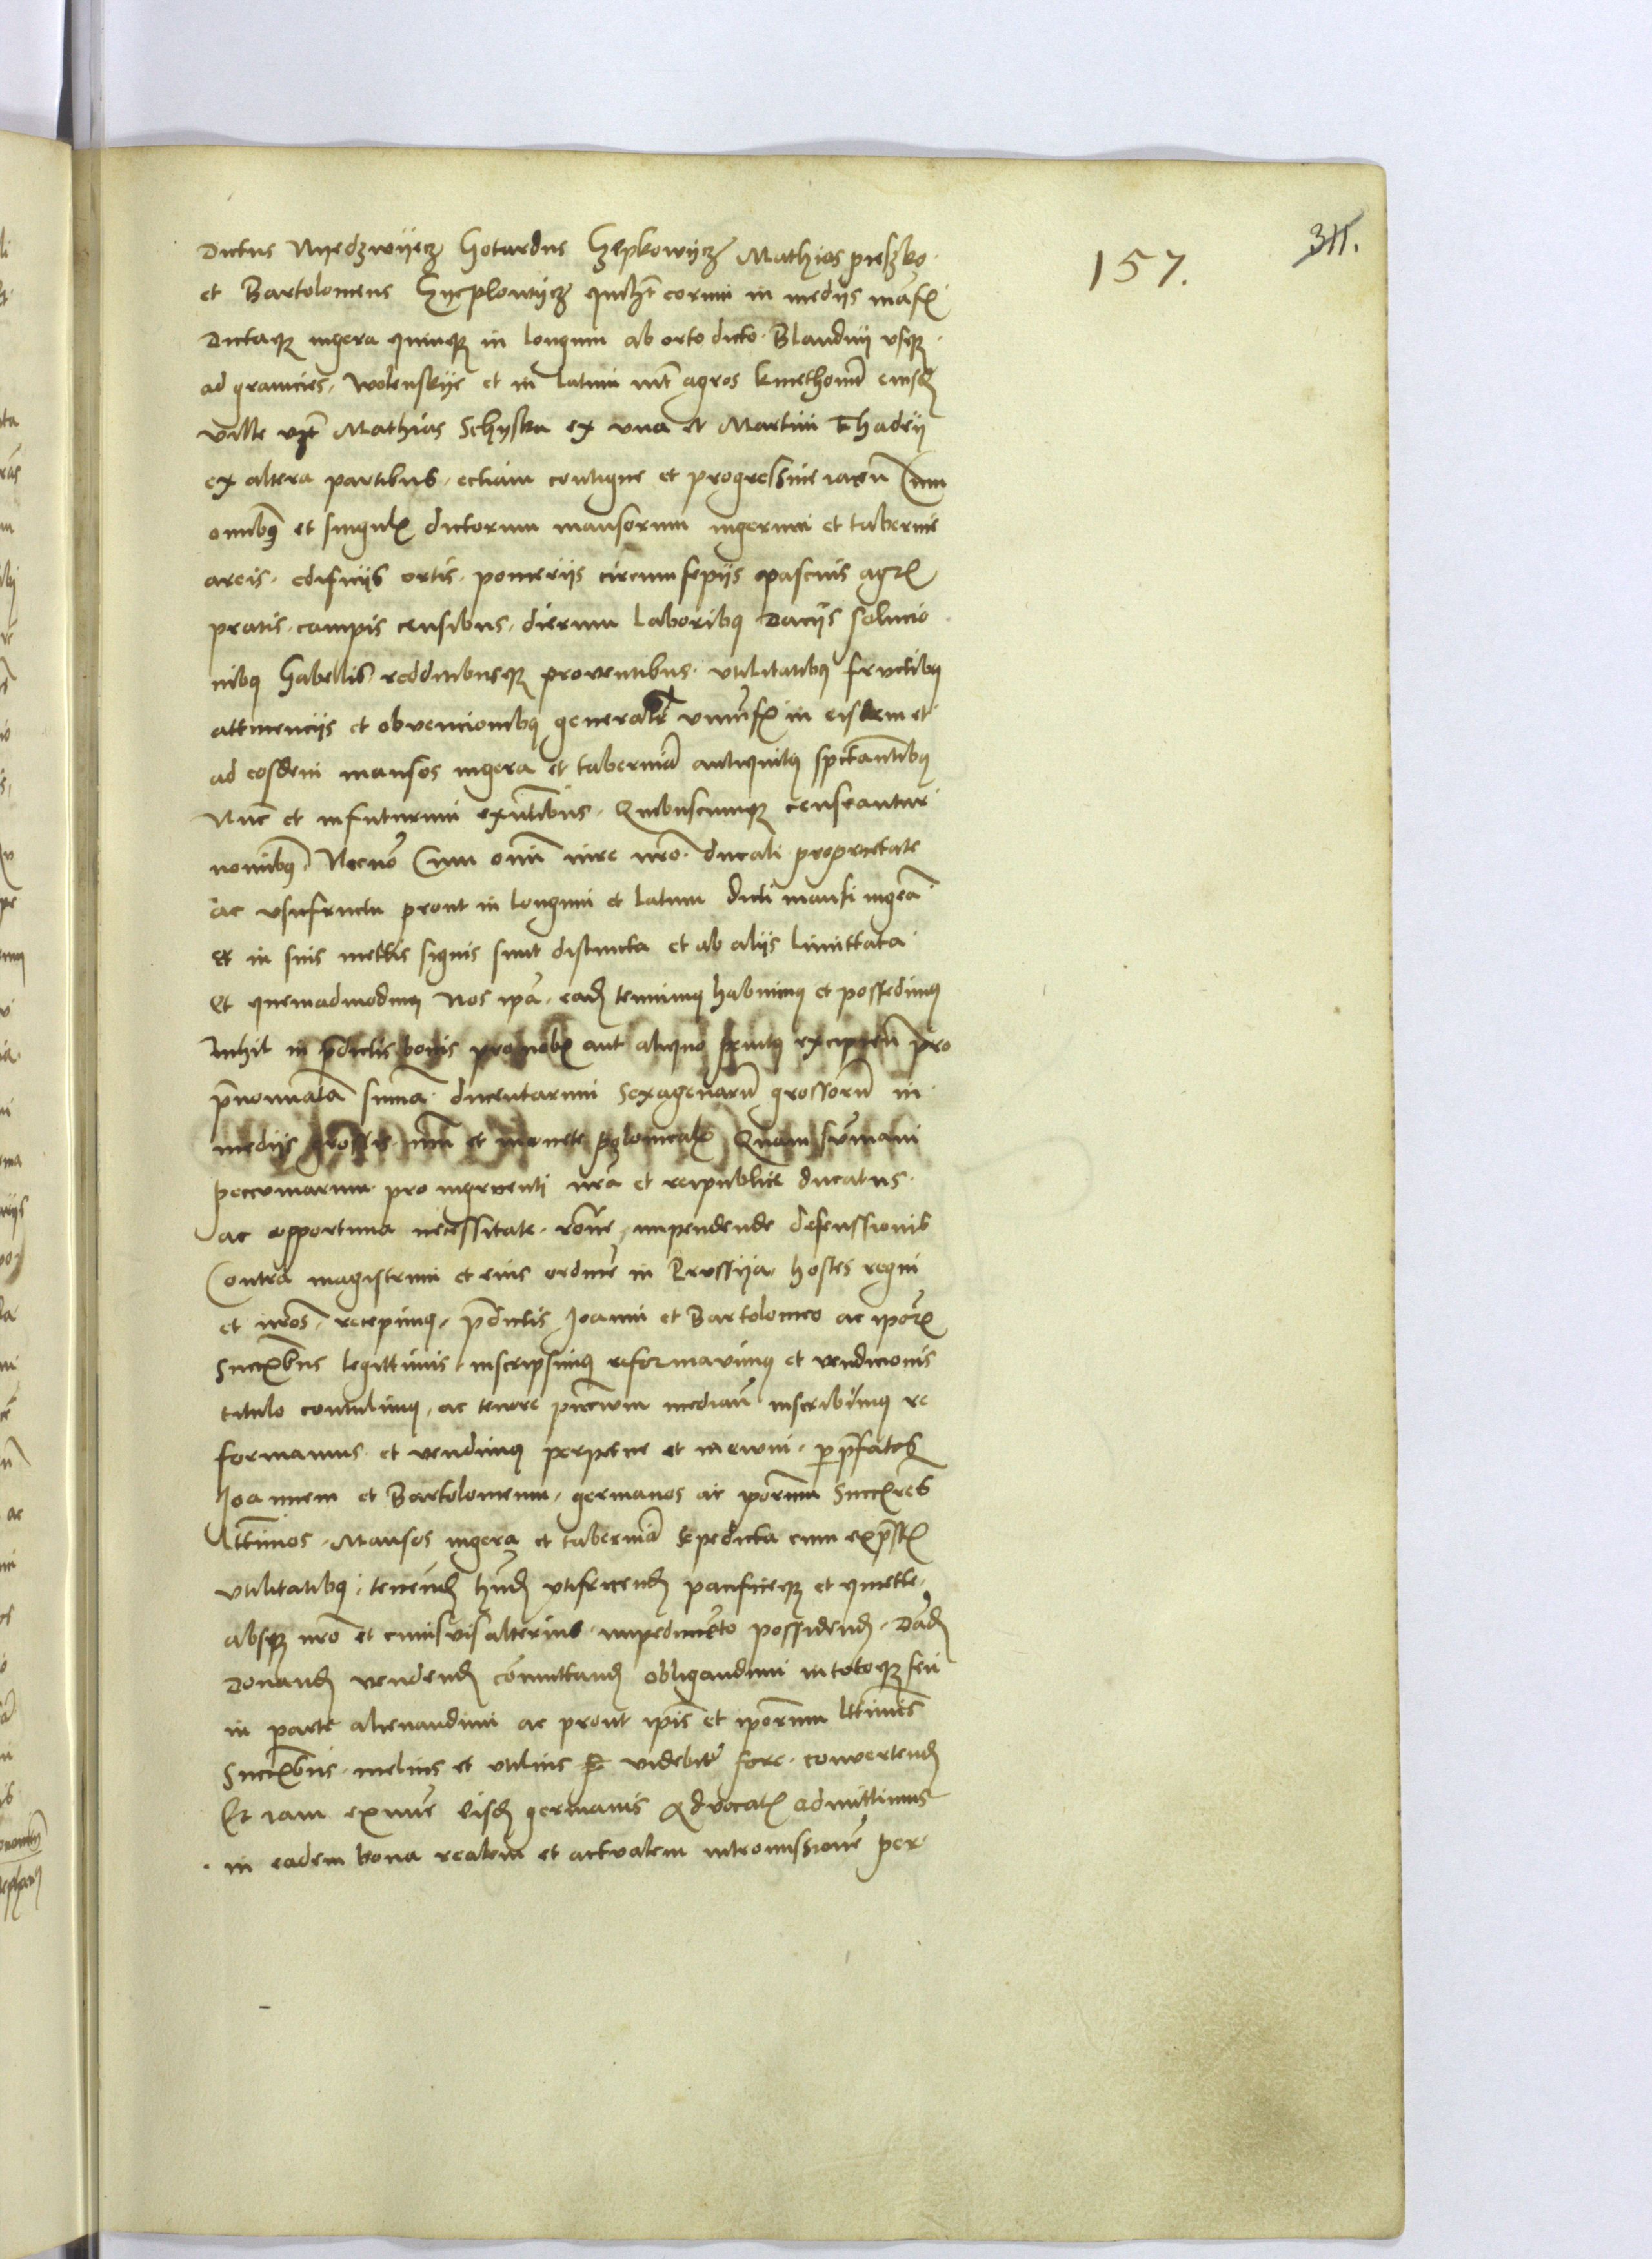 157.
311.
Dictus Nyedzwyecz Gotardus Czepkowycz Mathias pieszko
et Bartolomeus Czyeplowycz quilibet eorum in medijs mansis
Dictaque iugera quinque in longum ab orto dicto Blandnij usque
ad granicies Wolenskije et in latum inter agros kmethonum eiusdem
ville videlicet Mathias Schyska ex una et Martini Thadeij
ex altera partibus etiam contigue et progressive iacen Cum
omnibus et singulis dictorum mansorum iugerum et taberne
areis edificijs ortis pomerijs circumsepijs pascuis agris
pratis campis censibus dierum laboribus Dacijs solucio
nibus Gabellis redditibusque proventibus utilitatibus fructibus
attinencijs et obvencionibus generaliter universis in eisdem et
ad eosdem mansos iugera et tabernam antiquitus spectantibus
Nunc et infuturum existentibus Quibuscumque censeantur
nominibus Necnon Cum omni iure nostro ducali proprietate
ac usufructu prout in longum et latum dicti mansi iugera
et in suis mettis signis sunt distincta et ab alijs limittata
Et quemadmodum Nos ipsa eadem tenuimus habuimus et possedimus
Nihil in predictis bonis pro nobis aut aliquo penitus excipien pro
prenominata summa ducentarum Sexagenarum grossorum in
medijs grossis numeri et monete polonicalis Quam summam
peccuniarum pro ingruenti nostra et reipublice ducatus
ac opportuna necessitate racione impendende defenssionis
Contra magistrum et eius ordinem in Prussija hostes regni
et nostros recepimus predictis Joanni et Bartolomeo ac ipsorum
Successoribus legittimis inscripsimus reformavimus et vendicionis
titulo contulimus ac tenore presencium median inscribimus re
formamus et vendimus perpetue et in evum per prefatos
Joannem et Bartolomeum germanos ac ipsorum Successores
legittimos Mansos iugera et tabernam sepedicta cum expressis
utilitatibus tenend habend utifruend pacificeque et quiette
absque nostro et cuiusvis alterius impedimento possidend Dand
Donand vendend commuttand obligandum in totoque seu
in parte alienandum ac prout ipsis et ipsorum legittimis
Successoribus melius et utilius videbitur fore convertend
Et iam exnunc eisdem germanis advocatis admittimus
in eadem bona realem et actualem intromissionem per